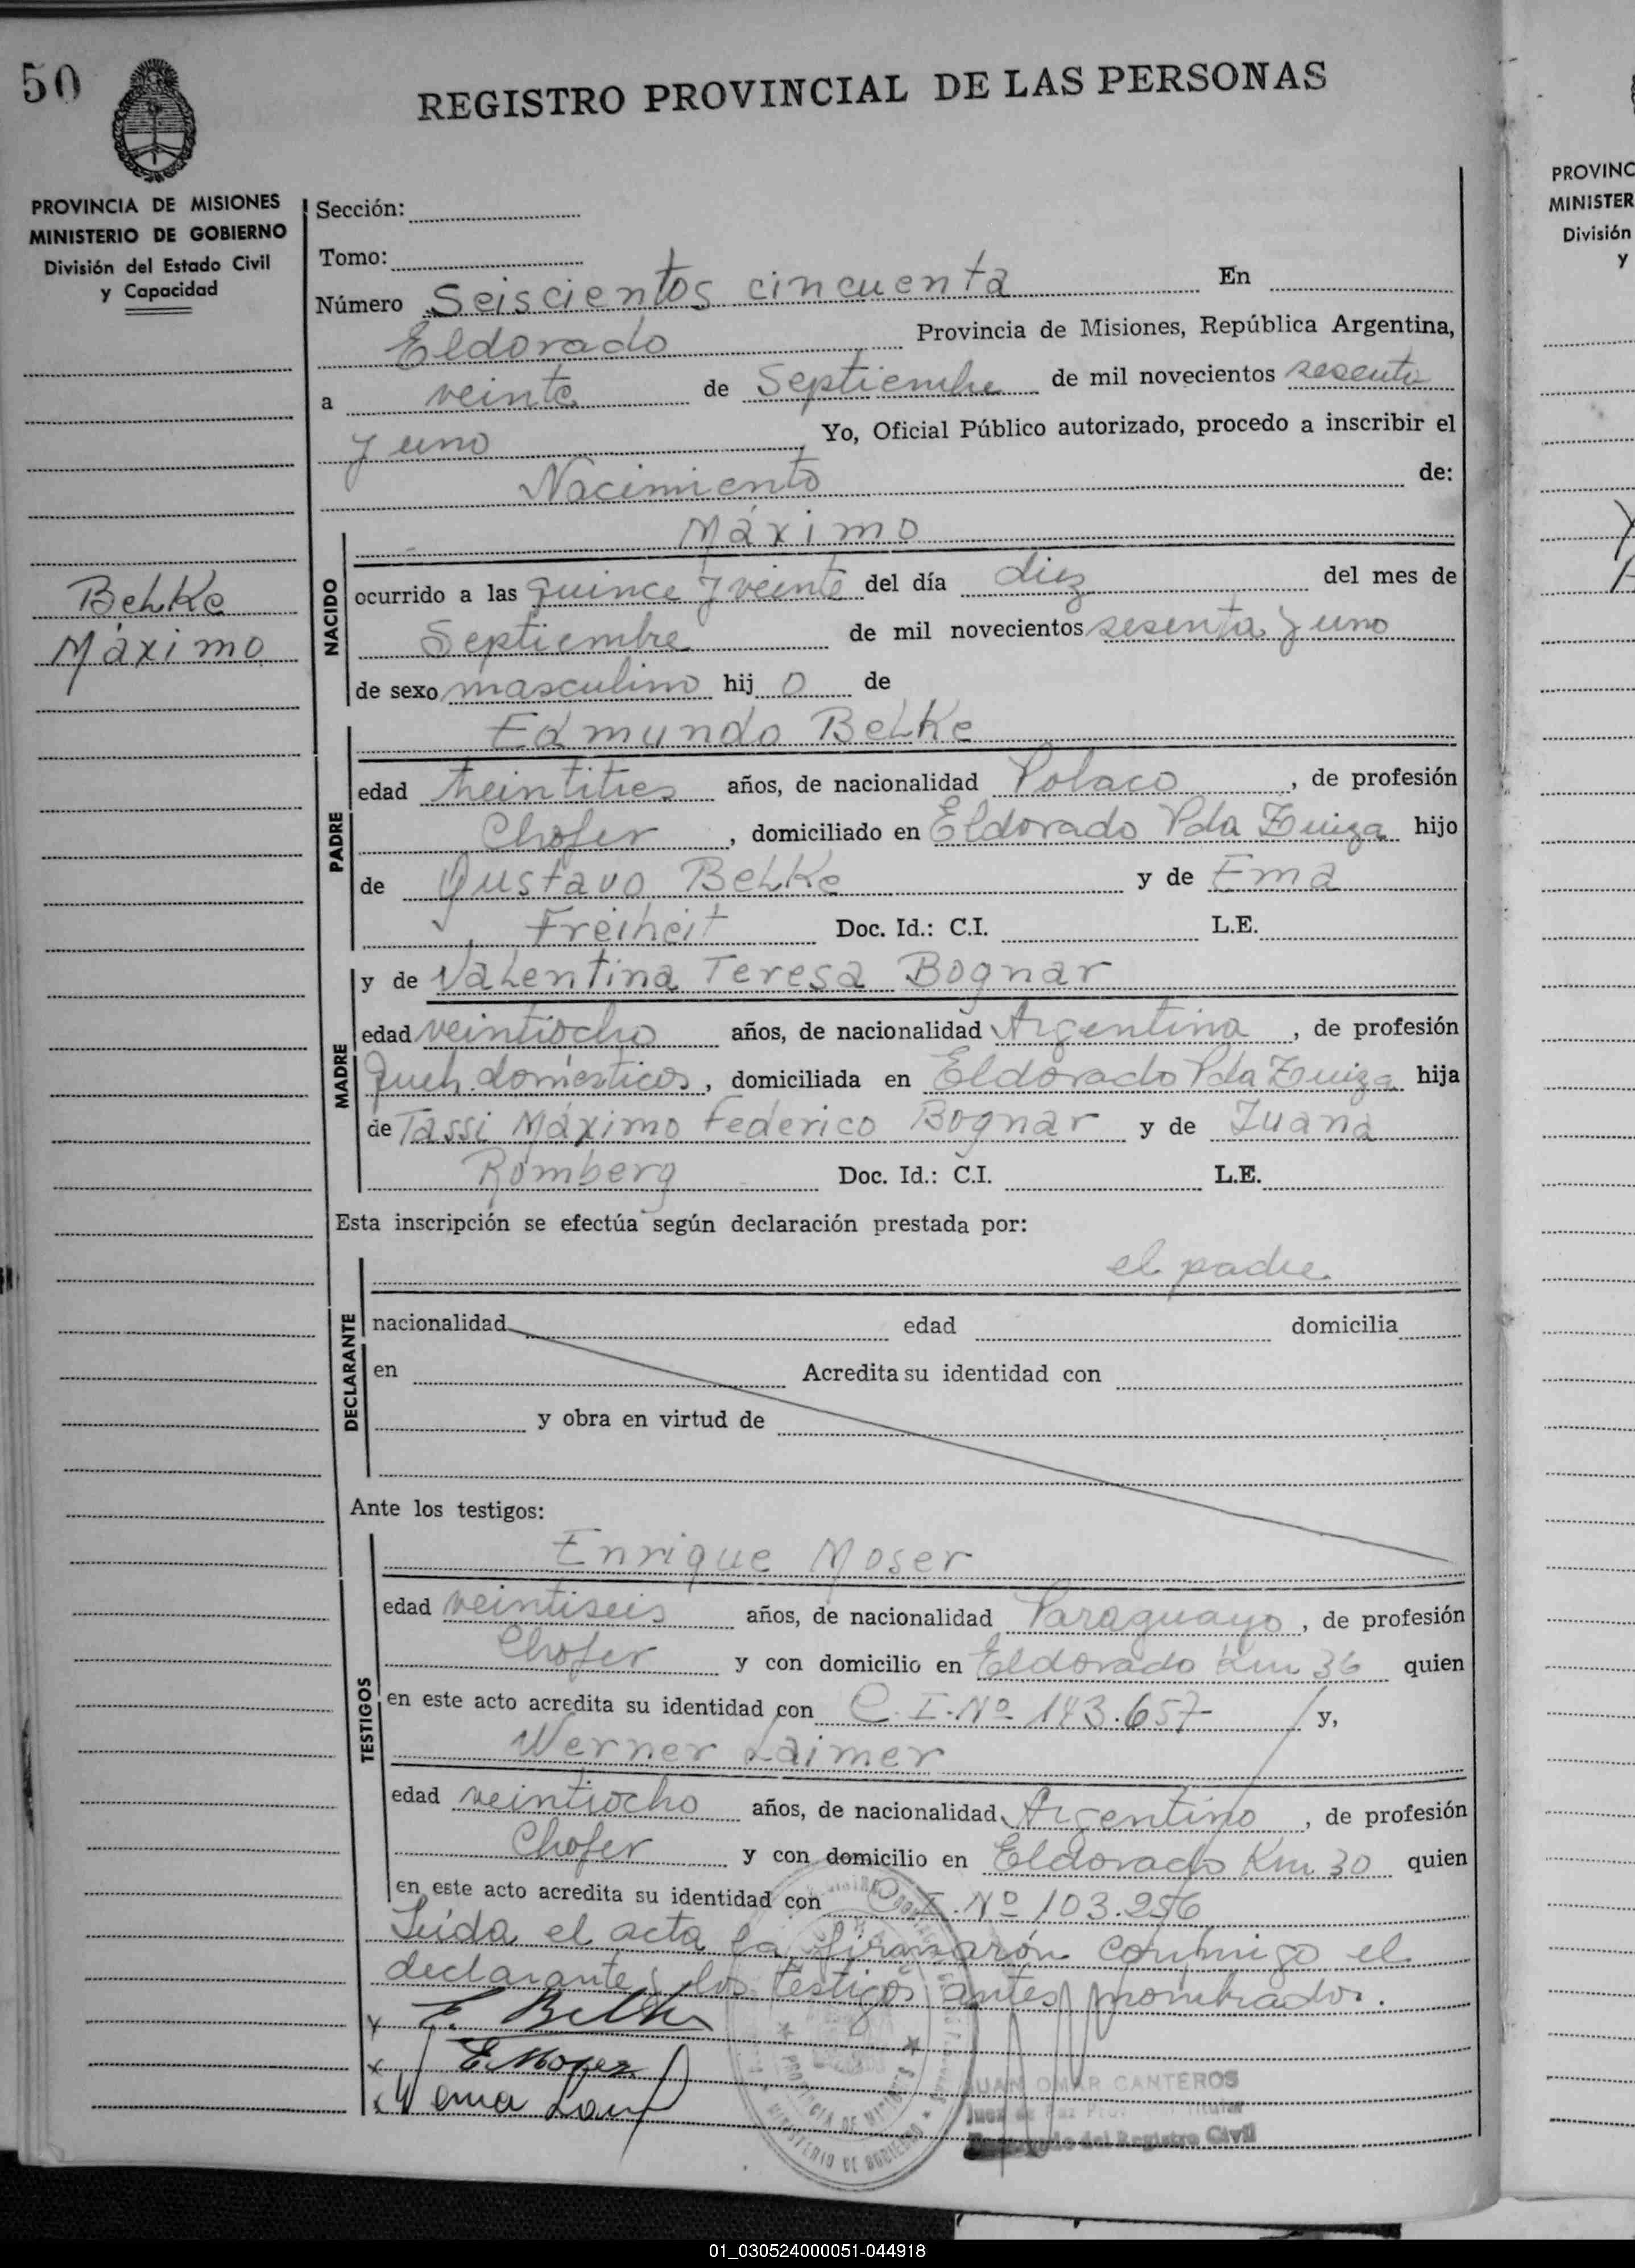 50
REGISTRO PROVINCIAL DE LAS PERSONAS
PROVINCIA DE MISIONES
MINISTERIO DE GOBIERNO
División del Estado Civil
y Capacidad
Sección:
Tomo:
Número Seiscientos cincuenta En
Eldorado Provincia de Misiones, República Argentina,
a veinte de Septiembre de mil novecientos sesenta
y uno Yo, Oficial Público autorizado, procedo a inscribir el
Nacimiento de:
Behke
Máximo
NACIDO
Máximo
ocurrido a las quince y veinte del día diez del mes de
Septiembre de mil novecientos sesenta y uno
de sexo masculino hij o de
PADRE
Edmundo Behke
edad treintitres años, de nacionalidad Polaco, de profesión
Chofer, domiciliado en Eldorado Pda Zuiza hijo
de Gustavo Behke y de Ema
Freiheit Doc. Id.: C.I. L.E.
MADRE
y de Valentina Teresa Bognar
edad veintiocho años, de nacionalidad Argentina, de profesión
Queh. domésticos, domiciliada en Eldorado Pda Zuiza hija
de Tassi Máximo Federico Bognar y de Juana
Romberg Doc. Id.: C.I. L.E.
Esta inscripción se efectúa según declaración prestada por:
DECLARANTE
el padre
nacionalidad edad domicilia
en Acredita su identidad con
y obra en virtud de
Ante los testigos:
TESTIGOS
Enrique Moser
edad veintiseis años, de nacionalidad Paraguayo, de profesión
Chofer y con domicilio en Eldorado Km 36 quien
en este acto acredita su identidad con C.I. Nº 143.657 y,
Werner Laimer
edad veintiocho años, de nacionalidad Argentino, de profesión
Chofer y con domicilio en Eldorado Km 30 quien
en este acto acredita su identidad con C.I. Nº 103.256
Leida el acta la firmarón conmigo el
declarante y los testigos antes nombrados.
E. Belke
E. Moser
JUAN OMAR CANTEROS
Juez de Paz Titular
Encargado del Registro Civil
PROVINCIA DE MISIONES
MINISTERIO DE GOBIERNO
PROVINC
MINISTER
División
y
01_030524000051-044918